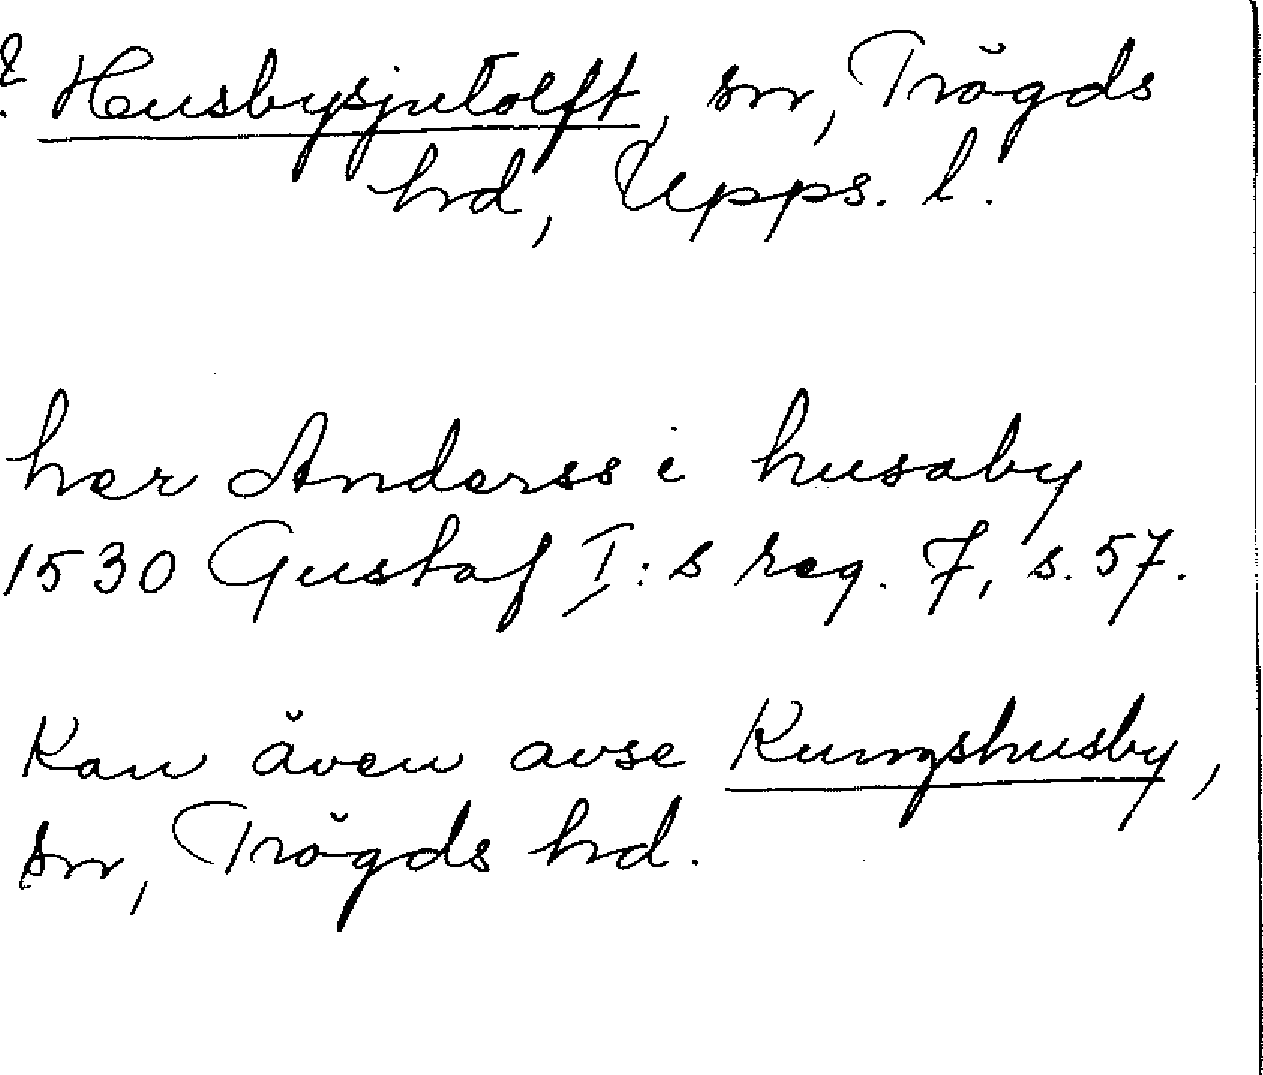 ? Husbysjutolft, sn, Trögds
hd, Upps. l.
her Anderss i husaby
1530 Gustaf I:s reg. 7, s. 57.
Kan även avse Kungshusby,
sn, Trögds hd.